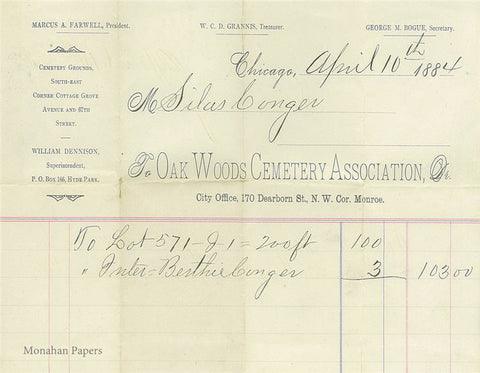 MARCUS A. FARWELL, President.
W. C. D. GRANNIS, Treasurer.
GEORGE M. BOGUE, Secretary.
CEMETERY GROUNDS,
SOUTH-EAST
CORNER COTTAGE GROVE
AVENUE AND 67TH
STREET.
WILLIAM DENNISON,
Superintendent,
P. O. BOX 166, HYDE PARK.
Chicago, April 10th 1884
M Silas Conger
To OAK WOODS CEMETERY ASSOCIATION, Dr.
City Office, 170 Dearborn St., N. W. Cor. Monroe.
To Lot 571-J 1 = 200 ft 100
" Inter = Berthie Conger 3 103 00
Monahan Papers